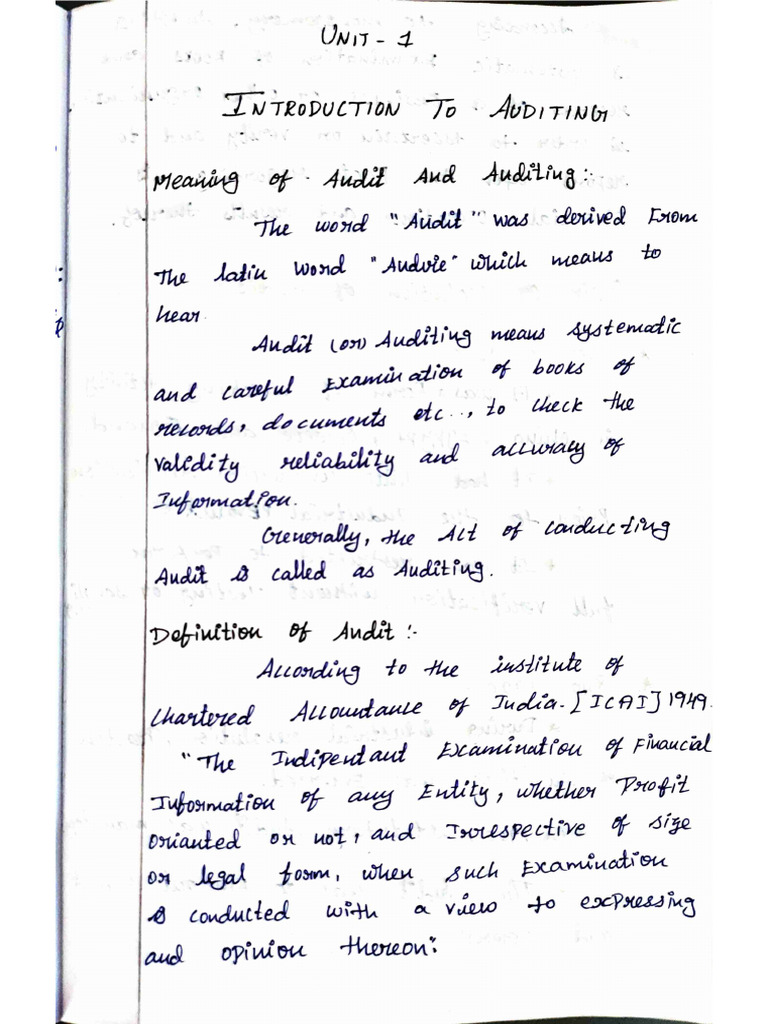 UNIT - 1
INTRODUCTION TO AUDITING
Meaning of Audit And Auditing:-
The word "Audit" was derived From
The latin word "Audvie" which means to
hear.
Audit (or) Auditing means systematic
and careful Examination of books of
records, documents etc.., to check the
validity reliability and accuracy of
Information.
Generally, the Act of conducting
Audit is called as Auditing.
Definition of Audit :-
According to the institute of
Chartered Accountance of India. [ICAI] 1949.
"The Indipentant Examination of Financial
Information of any Entity, whether Profit
orianted or not, and Irrespective of size
or legal form, when such Examination
is conducted with a view to expressing
and opinion thereon".